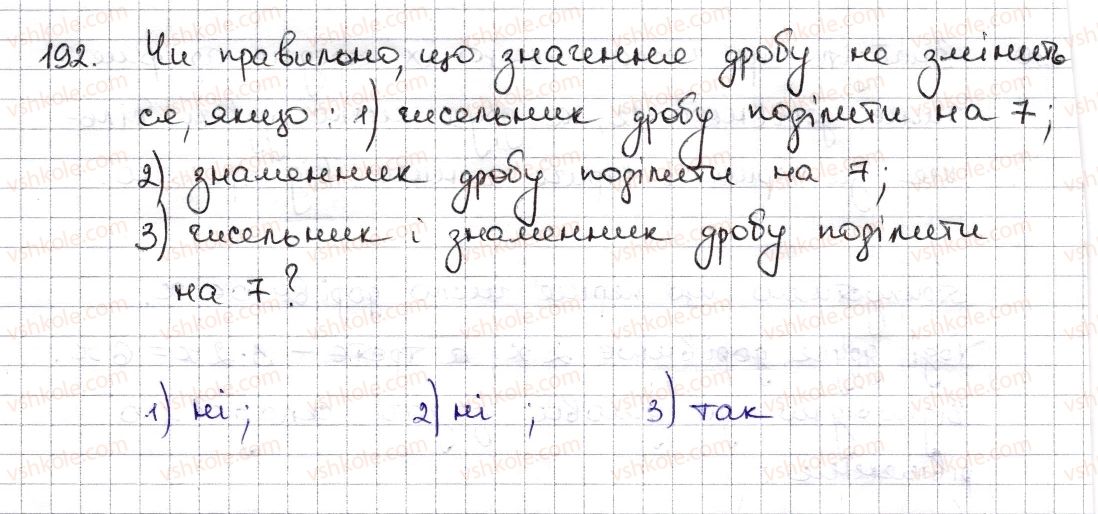 192. Чи правильно, що значення дробу не змінить
ся, якщо: 1) чисельник дробу поділити на 7;
2) знаменник дробу поділити на 7;
3) чисельник і знаменник дробу поділити
на 7?
1) ні; 2) ні ; 3) так